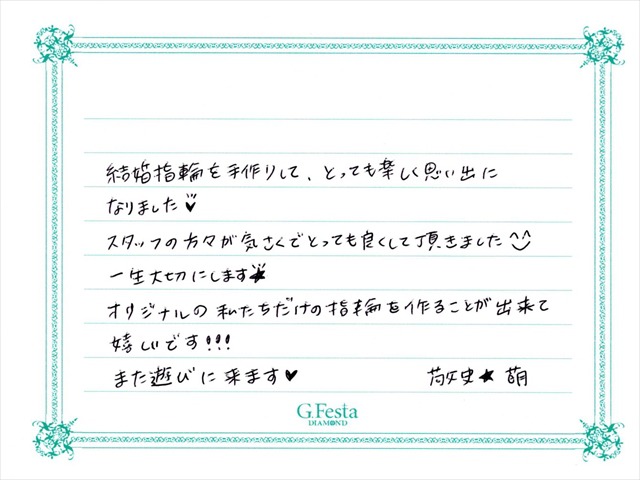 結婚指輪を手作りして、とっても楽しく思い出に
なりました♥
スタッフの方々が気さくでとっても良くして頂きました^^
一生大切にします★
オリジナルの私たちだけの指輪を作ることが出来て
嬉しいです!!!
また遊びに来ます♥ 敬史★萌
G.Festa
DIAMOND